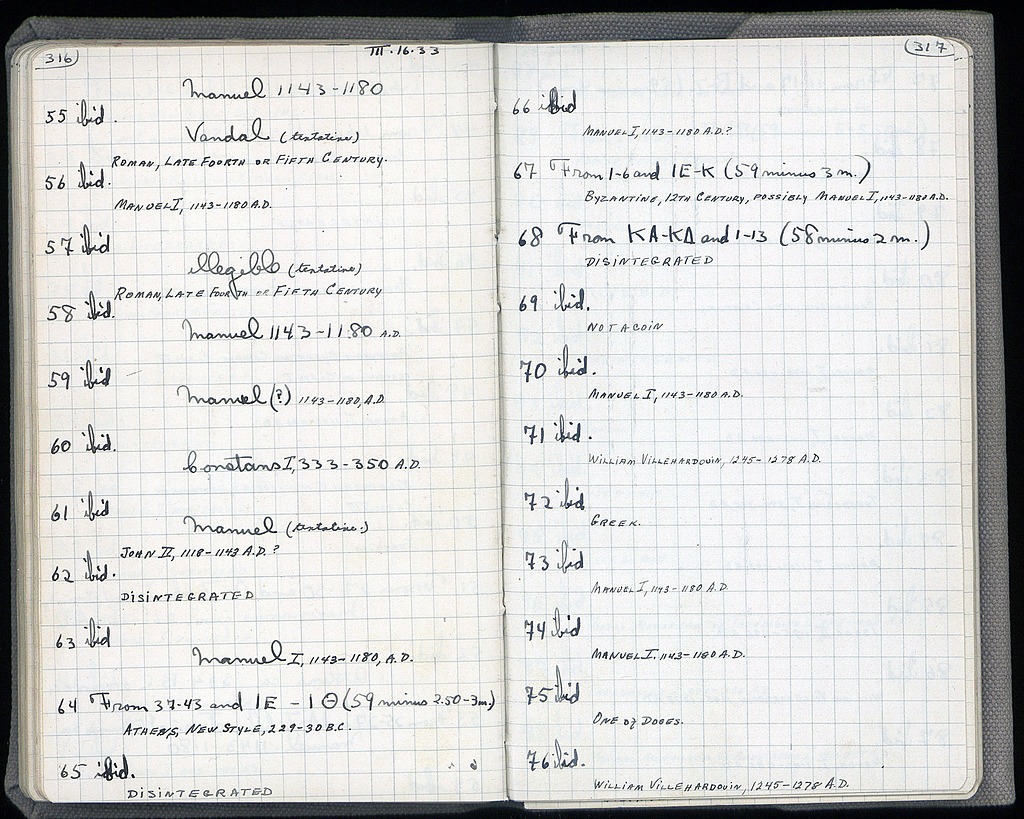 316
III·16·33
Manuel 1143-1180
55 ibid.
Vandal (tentative)
ROMAN, LATE FOURTH OR FIFTH CENTURY.
56 ibid.
MANUEL I, 1143-1180 A.D.
57 ibid
illegible (tentative)
ROMAN, LATE FOURTH OR FIFTH CENTURY
58 ibid.
Manuel 1143-1180 A.D.
59 ibid
Manuel (?) 1143-1180, A.D.
60 ibid.
Constans I, 333-350 A.D.
61 ibid
Manuel (tentative.)
JOHN II, 1118-1143 A.D.?
62 ibid.
DISINTEGRATED
63 ibid
Manuel I, 1143-1180, A.D.
64 From 37-43 and IE - IΘ (59 minus 2.50-3m.)
ATHENS, NEW STYLE, 229-30 B.C.
65 ibid.
DISINTEGRATED
317
66 ibid
MANUEL I, 1143-1180 A.D.?
67 From 1-6 and IE-K (59 minus 3 m.)
BYZANTINE, 12TH CENTURY, POSSIBLY MANUEL I, 1143-1180 A.D.
68 From KA-KΔ and 1-13 (58 minus 2 m.)
DISINTEGRATED
69 ibid.
NOT A COIN
70 ibid.
MANUEL I, 1143-1180 A.D.
71 ibid.
WILLIAM VILLEHARDOUIN, 1245-1278 A.D.
72 ibid
GREEK.
73 ibid
MANUEL I, 1143-1180 A.D.
74 ibid
MANUEL I. 1143-1180 A.D.
75 ibid
ONE OF DOGES.
76 ibid.
WILLIAM VILLEHARDOUIN, 1245-1278 A.D.